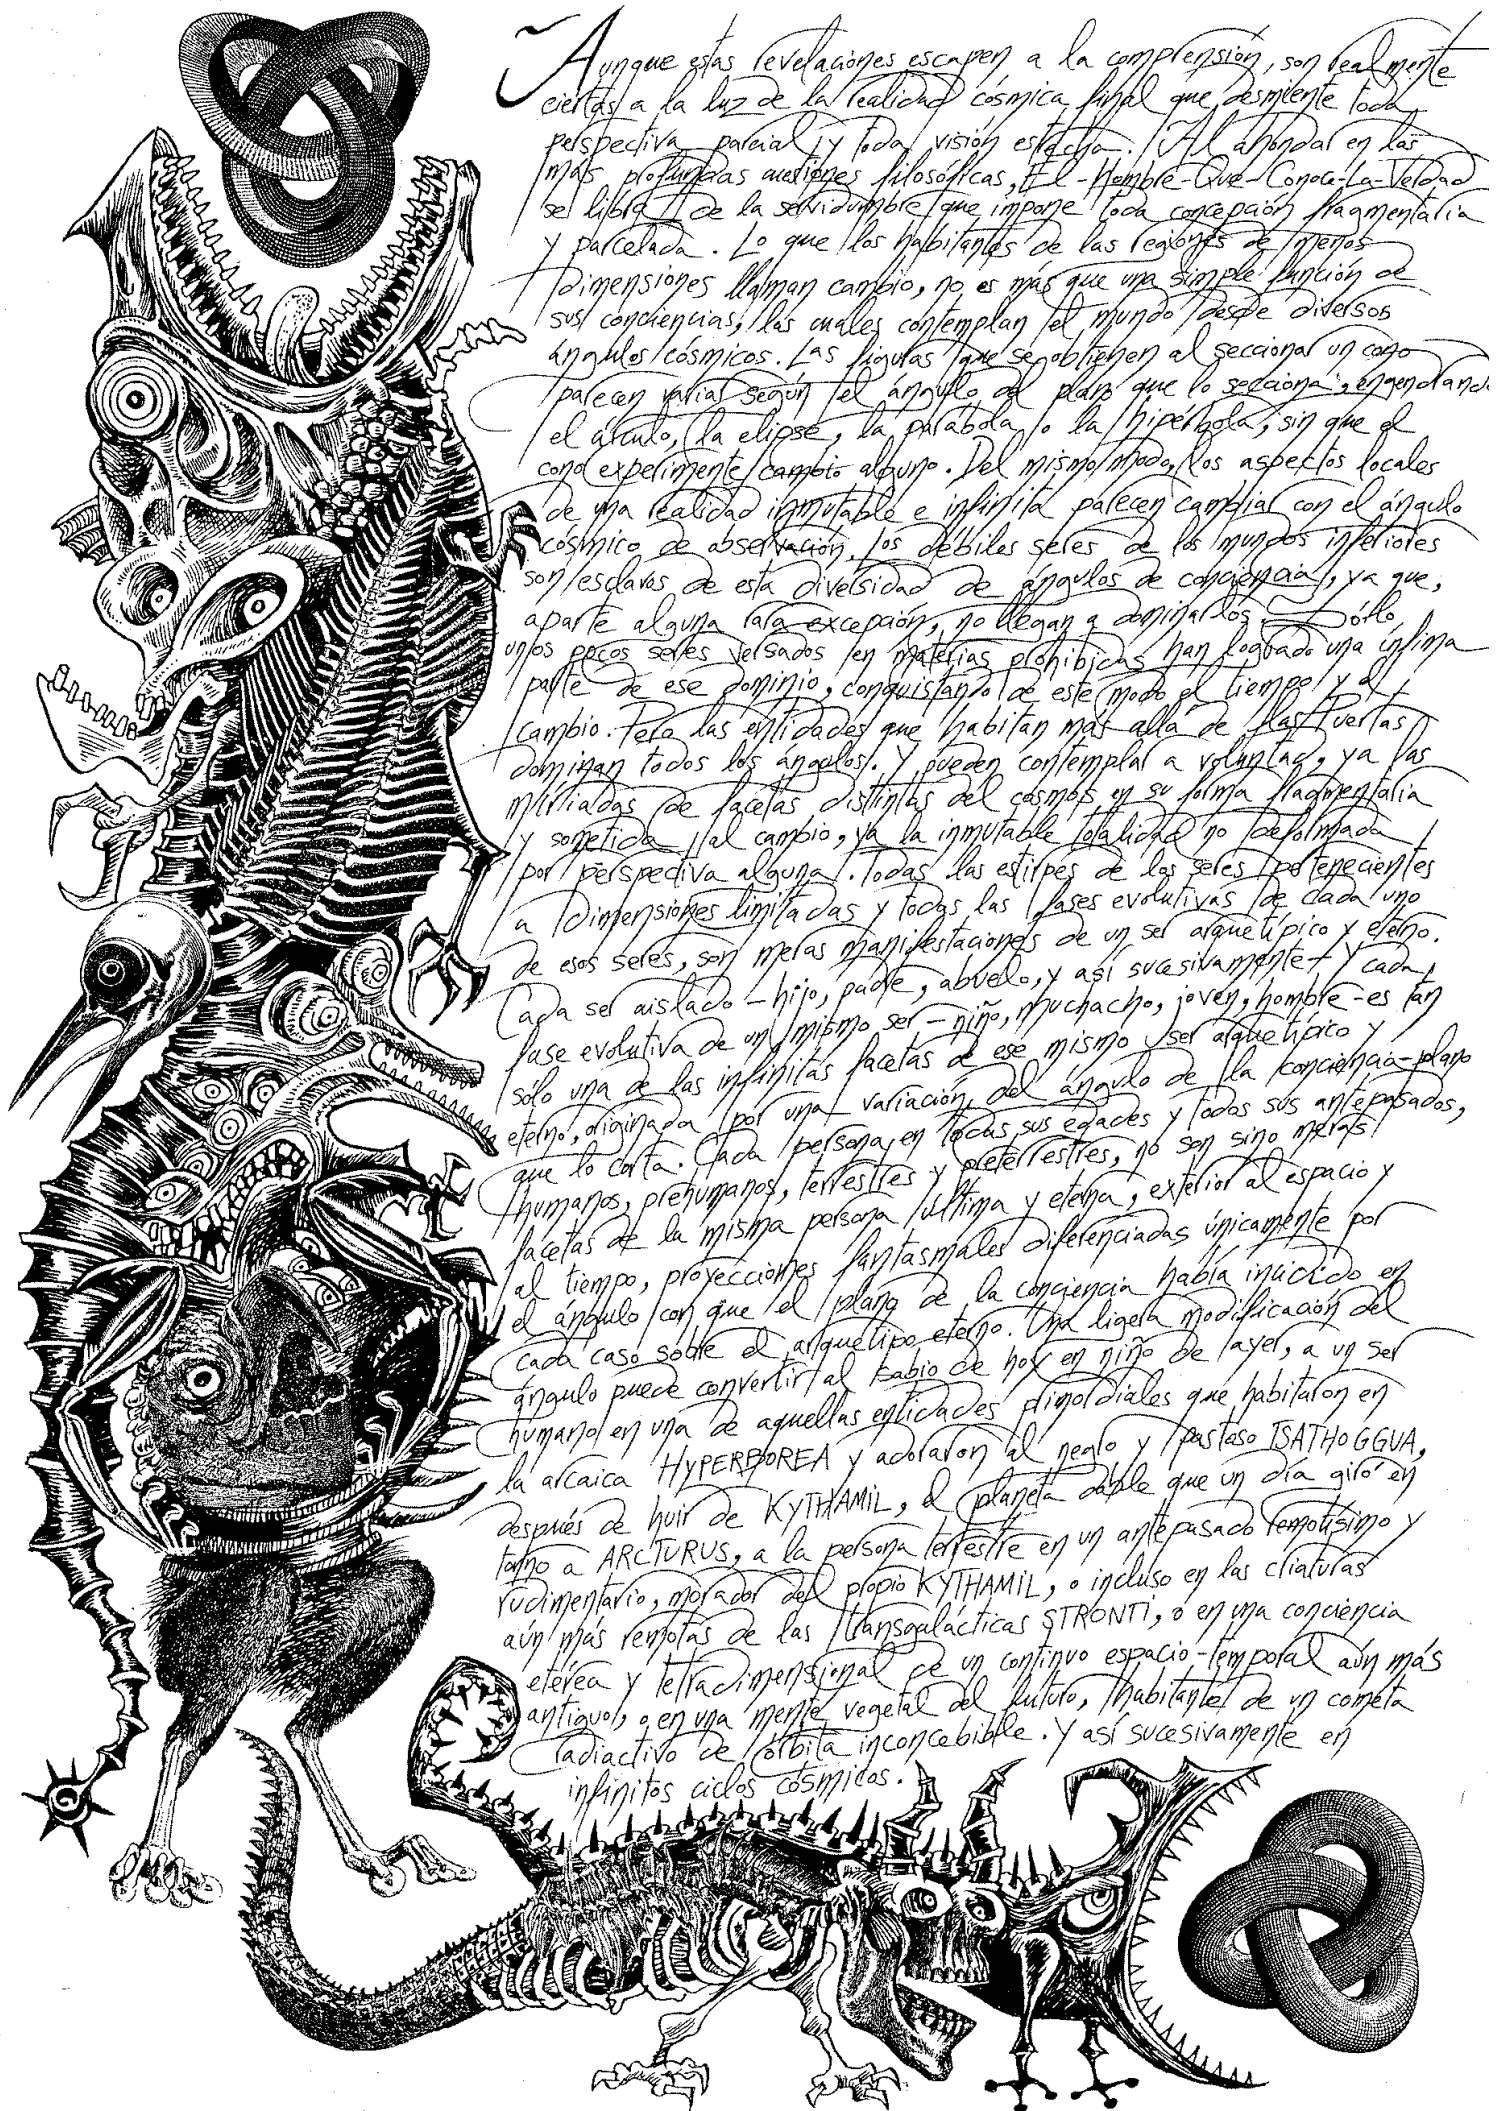 Aunque estas revelaciones escapen a la comprensión, son realmente
ciertas a la luz de la realidad cósmica final que desmiente toda
perspectiva parcial y toda visión estrecha. Al ahondar en las
más profundas cuestiones filosóficas, El-Hombre-Que-Conoce-La-Verdad
se libra de la servidumbre que impone toda concepción fragmentaria
y parcelada. Lo que los habitantes de las regiones de menos
dimensiones llaman cambio, no es más que una simple función de
sus conciencias, las cuales contemplan el mundo desde diversos
ángulos cósmicos. Las figuras que se obtienen al seccionar un cono
parecen variar según el ángulo del plano que lo secciona, engendrando
el círculo, la elipse, la parábola o la hipérbola, sin que el
cono experimente cambio alguno. Del mismo modo, los aspectos locales
de una realidad inmutable e infinita parecen cambiar con el ángulo
cósmico de observación. Los débiles seres de los mundos inferiores
son esclavos de esta diversidad de ángulos de conciencia, ya que,
aparte alguna rara excepción, no llegan a dominarlos. Sólo
unos pocos seres versados en materias prohibidas han logrado una ínfima
parte de ese dominio, conquistando de este modo el tiempo y el
cambio. Pero las entidades que habitan más allá de las Puertas
dominan todos los ángulos. Y pueden contemplar a voluntad, ya las
miríadas de facetas distintas del cosmos en su forma fragmentaria
y sometida al cambio, ya la inmutable totalidad no deformada
por perspectiva alguna. Todas las estirpes de los seres pertenecientes
a dimensiones limitadas y todas las fases evolutivas de cada uno
de esos seres, son meras manifestaciones de un ser arquetípico y eterno.
Cada ser aislado -hijo, padre, abuelo, y así sucesivamente- y cada
fase evolutiva de un mismo ser -niño, muchacho, joven, hombre- es tan
sólo una de las infinitas facetas de ese mismo ser arquetípico y
eterno, originada por una variación del ángulo de la conciencia-plano
que lo corta. Cada persona, en todas sus edades y todos sus antepasados,
humanos, prehumanos, terrestres y preterrestres, no son sino meras
facetas de la misma persona última y eterna, exterior al espacio y
al tiempo, proyecciones fantasmales diferenciadas únicamente por
el ángulo con que el plano de la conciencia había incidido en
cada caso sobre el arquetipo eterno. Una ligera modificación del
ángulo puede convertir al sabio de hoy en niño de ayer, a un ser
humano en una de aquellas entidades primordiales que habitaron en
la arcaica HYPERBOREA y adoraron al negro y pastoso TSATHOGGUA,
después de huir de KYTHAMIL, el planeta doble que un día giró en
torno a ARCTURUS, a la persona terrestre en un antepasado remotísimo y
rudimentario, morador del propio KYTHAMIL, o incluso en las criaturas
aún más remotas de las transgalácticas STRONTI, o en una conciencia
etérea y tetradimensional de un continuo espacio-temporal aún más
antiguo, o en una mente vegetal del futuro, habitante de un cometa
radiactivo de órbita inconcebible. Y así sucesivamente en
infinitos ciclos cósmicos.